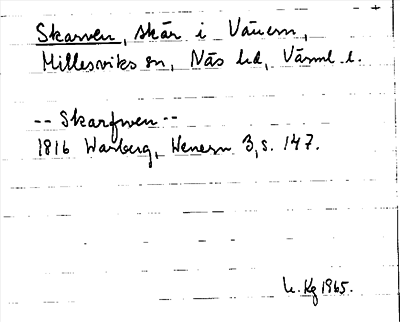 Skarven, skär i Vänern,
Millesviks sn, Näs hd, Värml. l.
-- Skarfwen --
1816 Warberg, Wenern 3, s. 147.
L. Kg 1965.